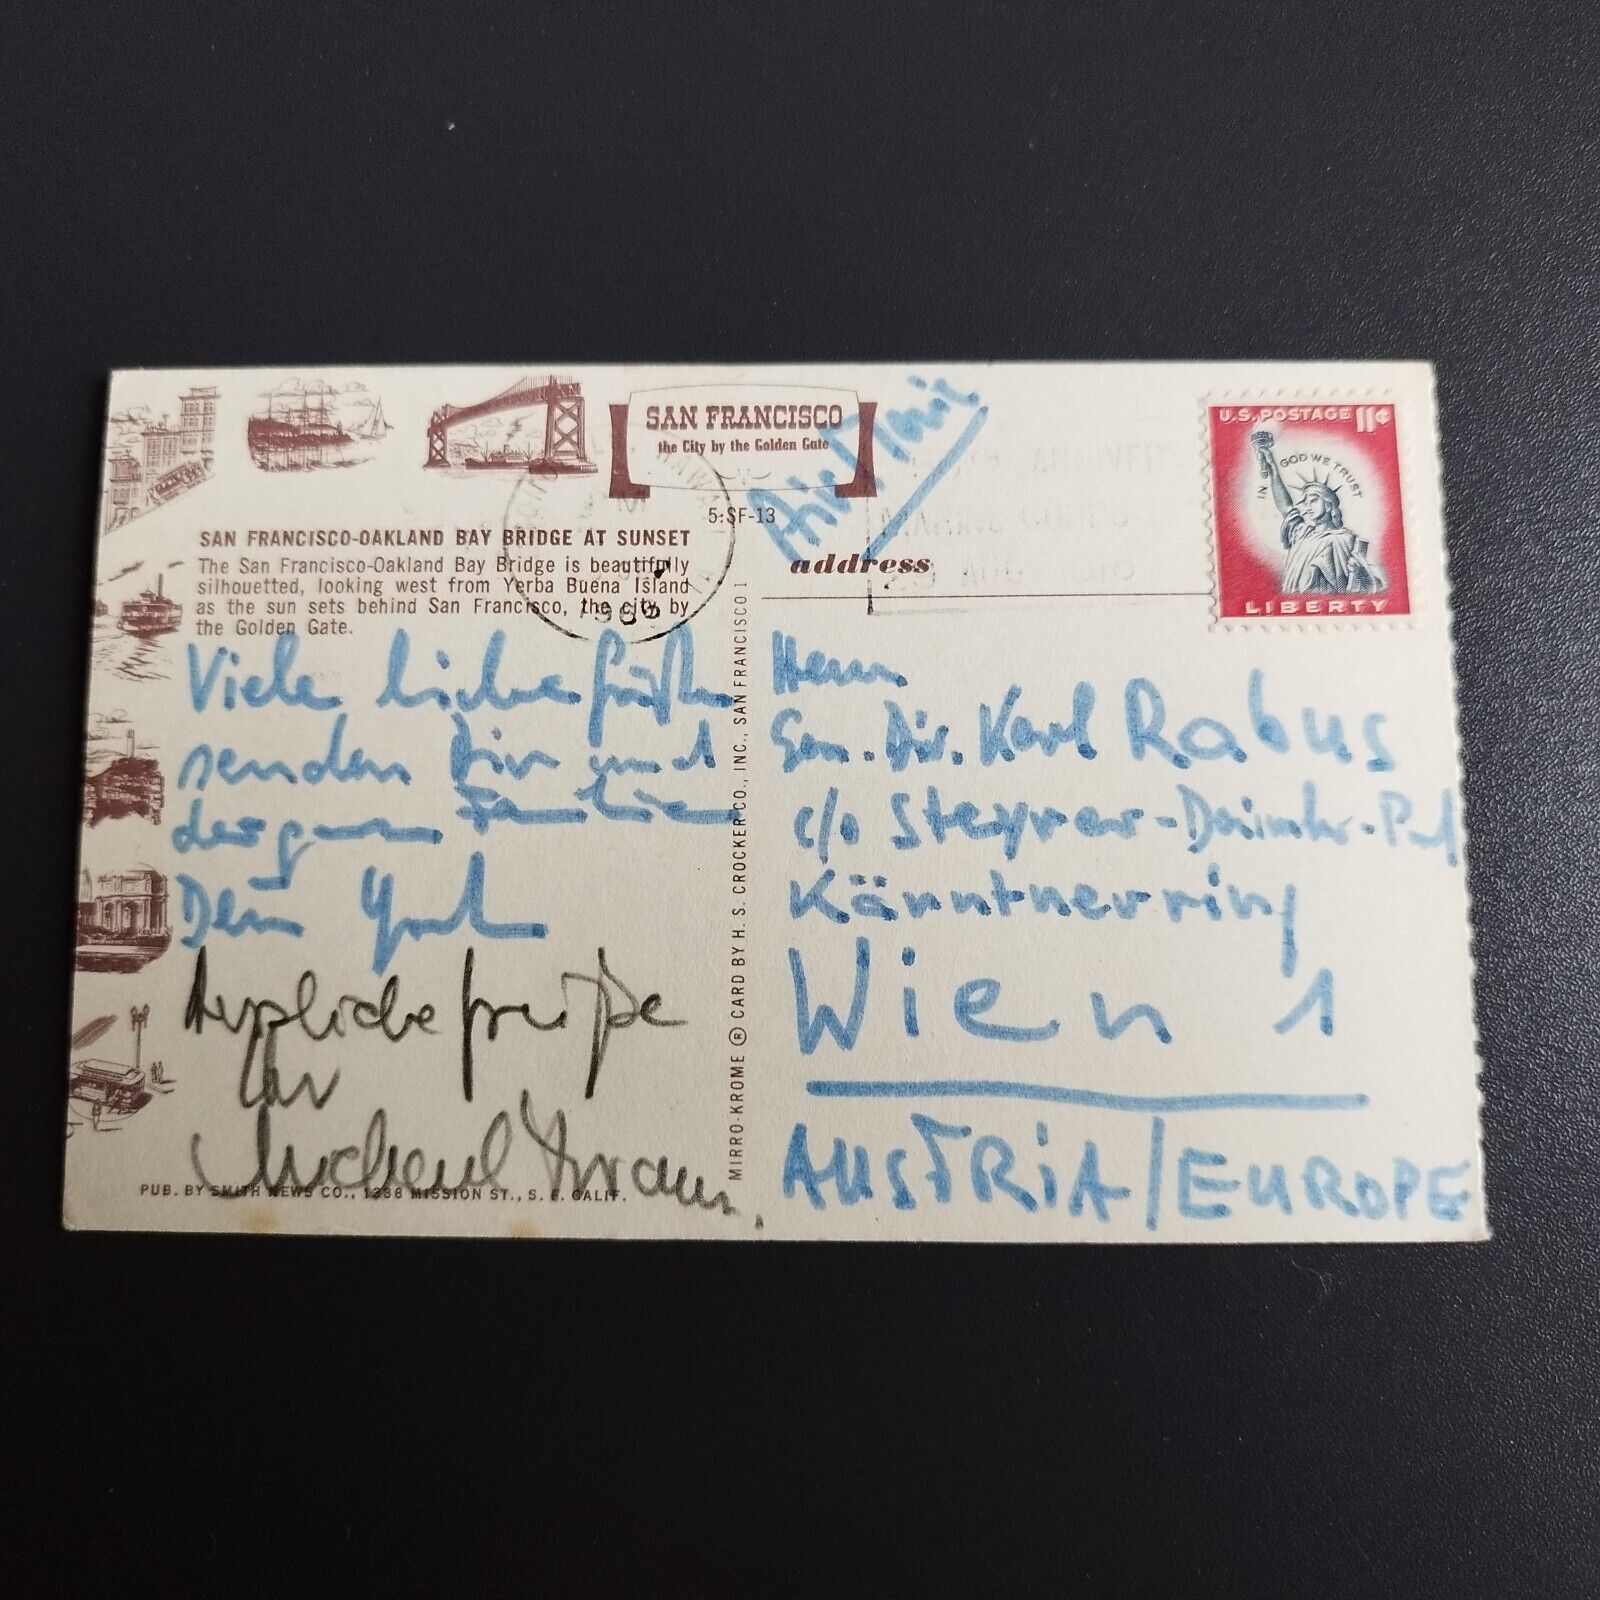 SAN FRANCISCO
the City by the Golden Gate
5:SF-13
SAN FRANCISCO-OAKLAND BAY BRIDGE AT SUNSET
The San Francisco-Oakland Bay Bridge is beautifully
silhouetted, looking west from Yerba Buena Island
as the sun sets behind San Francisco, the city by
the Golden Gate.
Viele liebe Grüße
senden Dir und
der ganzen Familie
Dein
Herzliche Grüße
Ihr
Michael
PUB. BY SMITH NEWS CO., 1338 MISSION ST., S. F. CALIF.
MIRRO-KROME ® CARD BY H. S. CROCKER CO., INC., SAN FRANCISCO 1
Air Mail
address
U.S. POSTAGE 11¢
IN GOD WE TRUST
LIBERTY
Herrn
Gen. Dir. Karl Rabus
c/o Steyrer-Daimler-
Kärntnerring
Wien 1
AUSTRIA/EUROPE